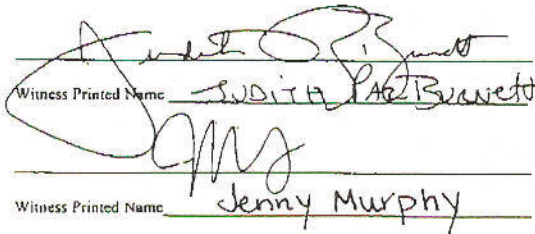 Judith Burnett
Witness Printed Name JUDITH BURNETT
Witness Printed Name Jenny Murphy